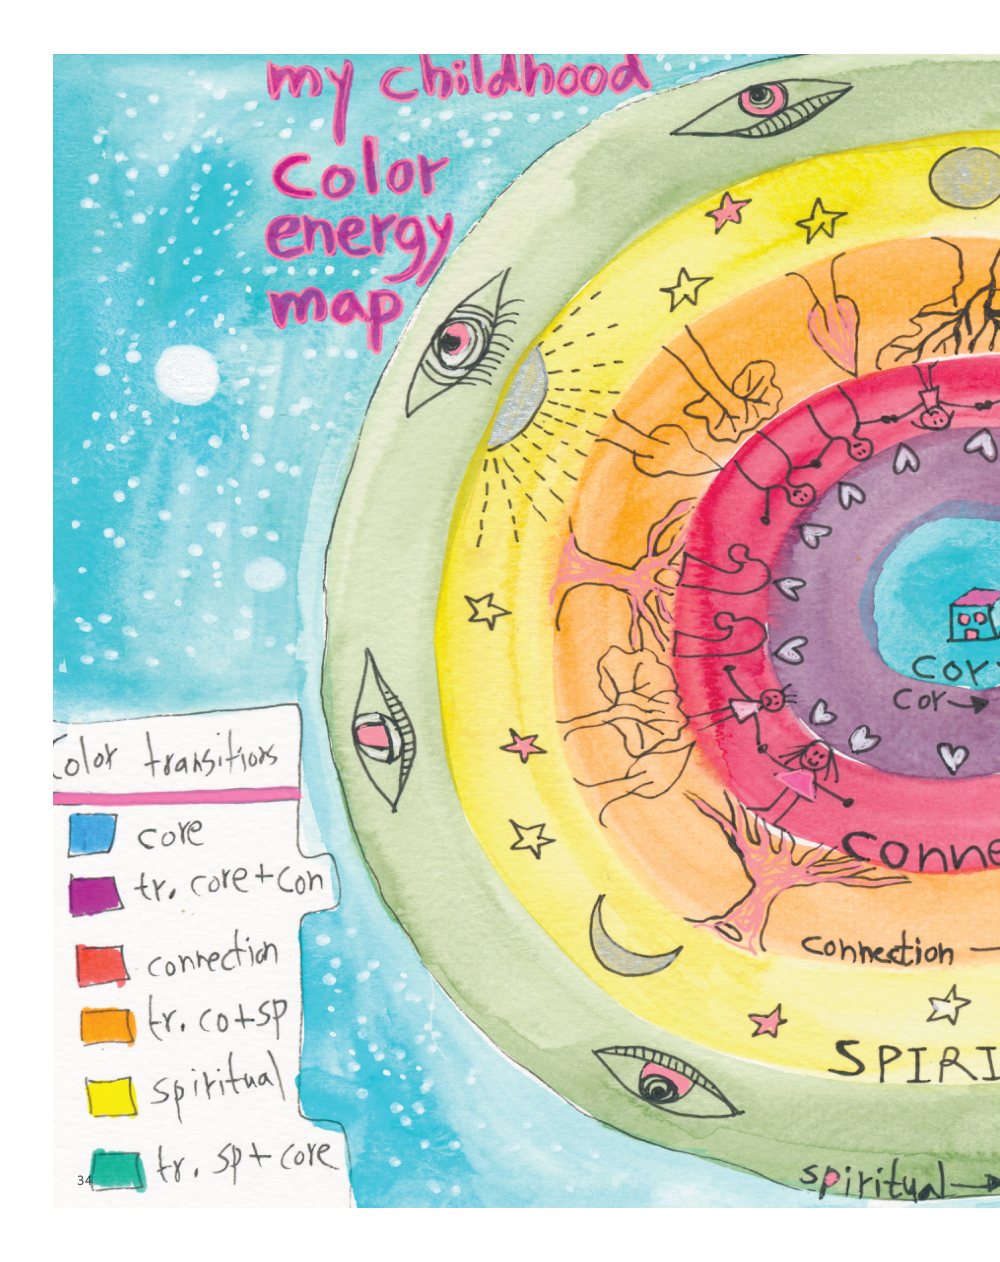 my childhood
color
energy
map
cor
cor
Color transitions
core
tr. core+con
connection
tr. co+sp
spiritual
tr. sp+core
Conne
connection
SPIRI
spiritual
34